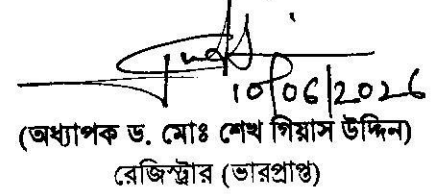 10/06/2026
(অধ্যাপক ড. মোঃ শেখ গিয়াস উদ্দিন)
রেজিস্ট্রার (ভারপ্রাপ্ত)